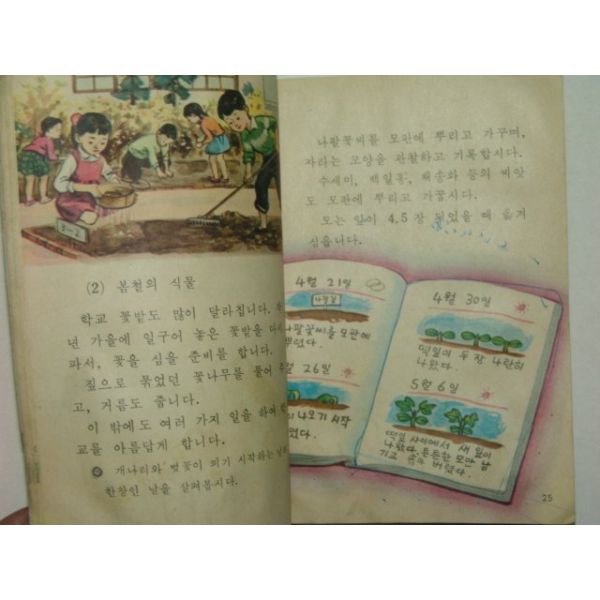 3-2
(2) 봄철의 식물
학교 꽃밭도 많이 달라집니다.
년 가을에 일구어 놓은 꽃밭을 다시
파서, 꽃을 심을 준비를 합니다.
짚으로 묶었던 꽃나무를 풀어
고, 거름도 줍니다.
이 밖에도 여러 가지 일을 하여
교를 아름답게 합니다.
개나리와 벚꽃이 피기 시작하는
한창인 날을 살펴봅시다.
나팔꽃씨를 모판에 뿌리고 가꾸며,
자라는 모양을 관찰하고 기록합시다.
수세미, 백일홍, 채송화 등의 씨앗
도 모판에 뿌리고 가꿉시다.
모는 잎이 4,5장 되었을 때 옮겨
심읍니다.
4월 21일
나팔꽃
나팔꽃씨를 모판에
뿌렸다.
월 26일
이 나오기 시작
했다.
4월 30일
떡잎이 두 장 나란히
나왔다.
5월 6일
떡잎 사이에서 새 잎이
나왔다. 튼튼한 모만 남
기고 솎아 버렸다.
25